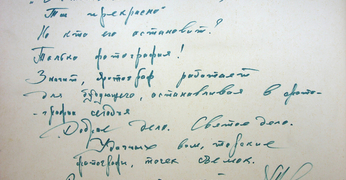 Ты прекрасно"
Но кто его остановит?
Только фотография!
Значит, фотограф работает
для будущего, останавливая в фото-
-графии сегодня
Доброе дело. Святое дело.
Удачных вам,
фотографы, точек съемок.